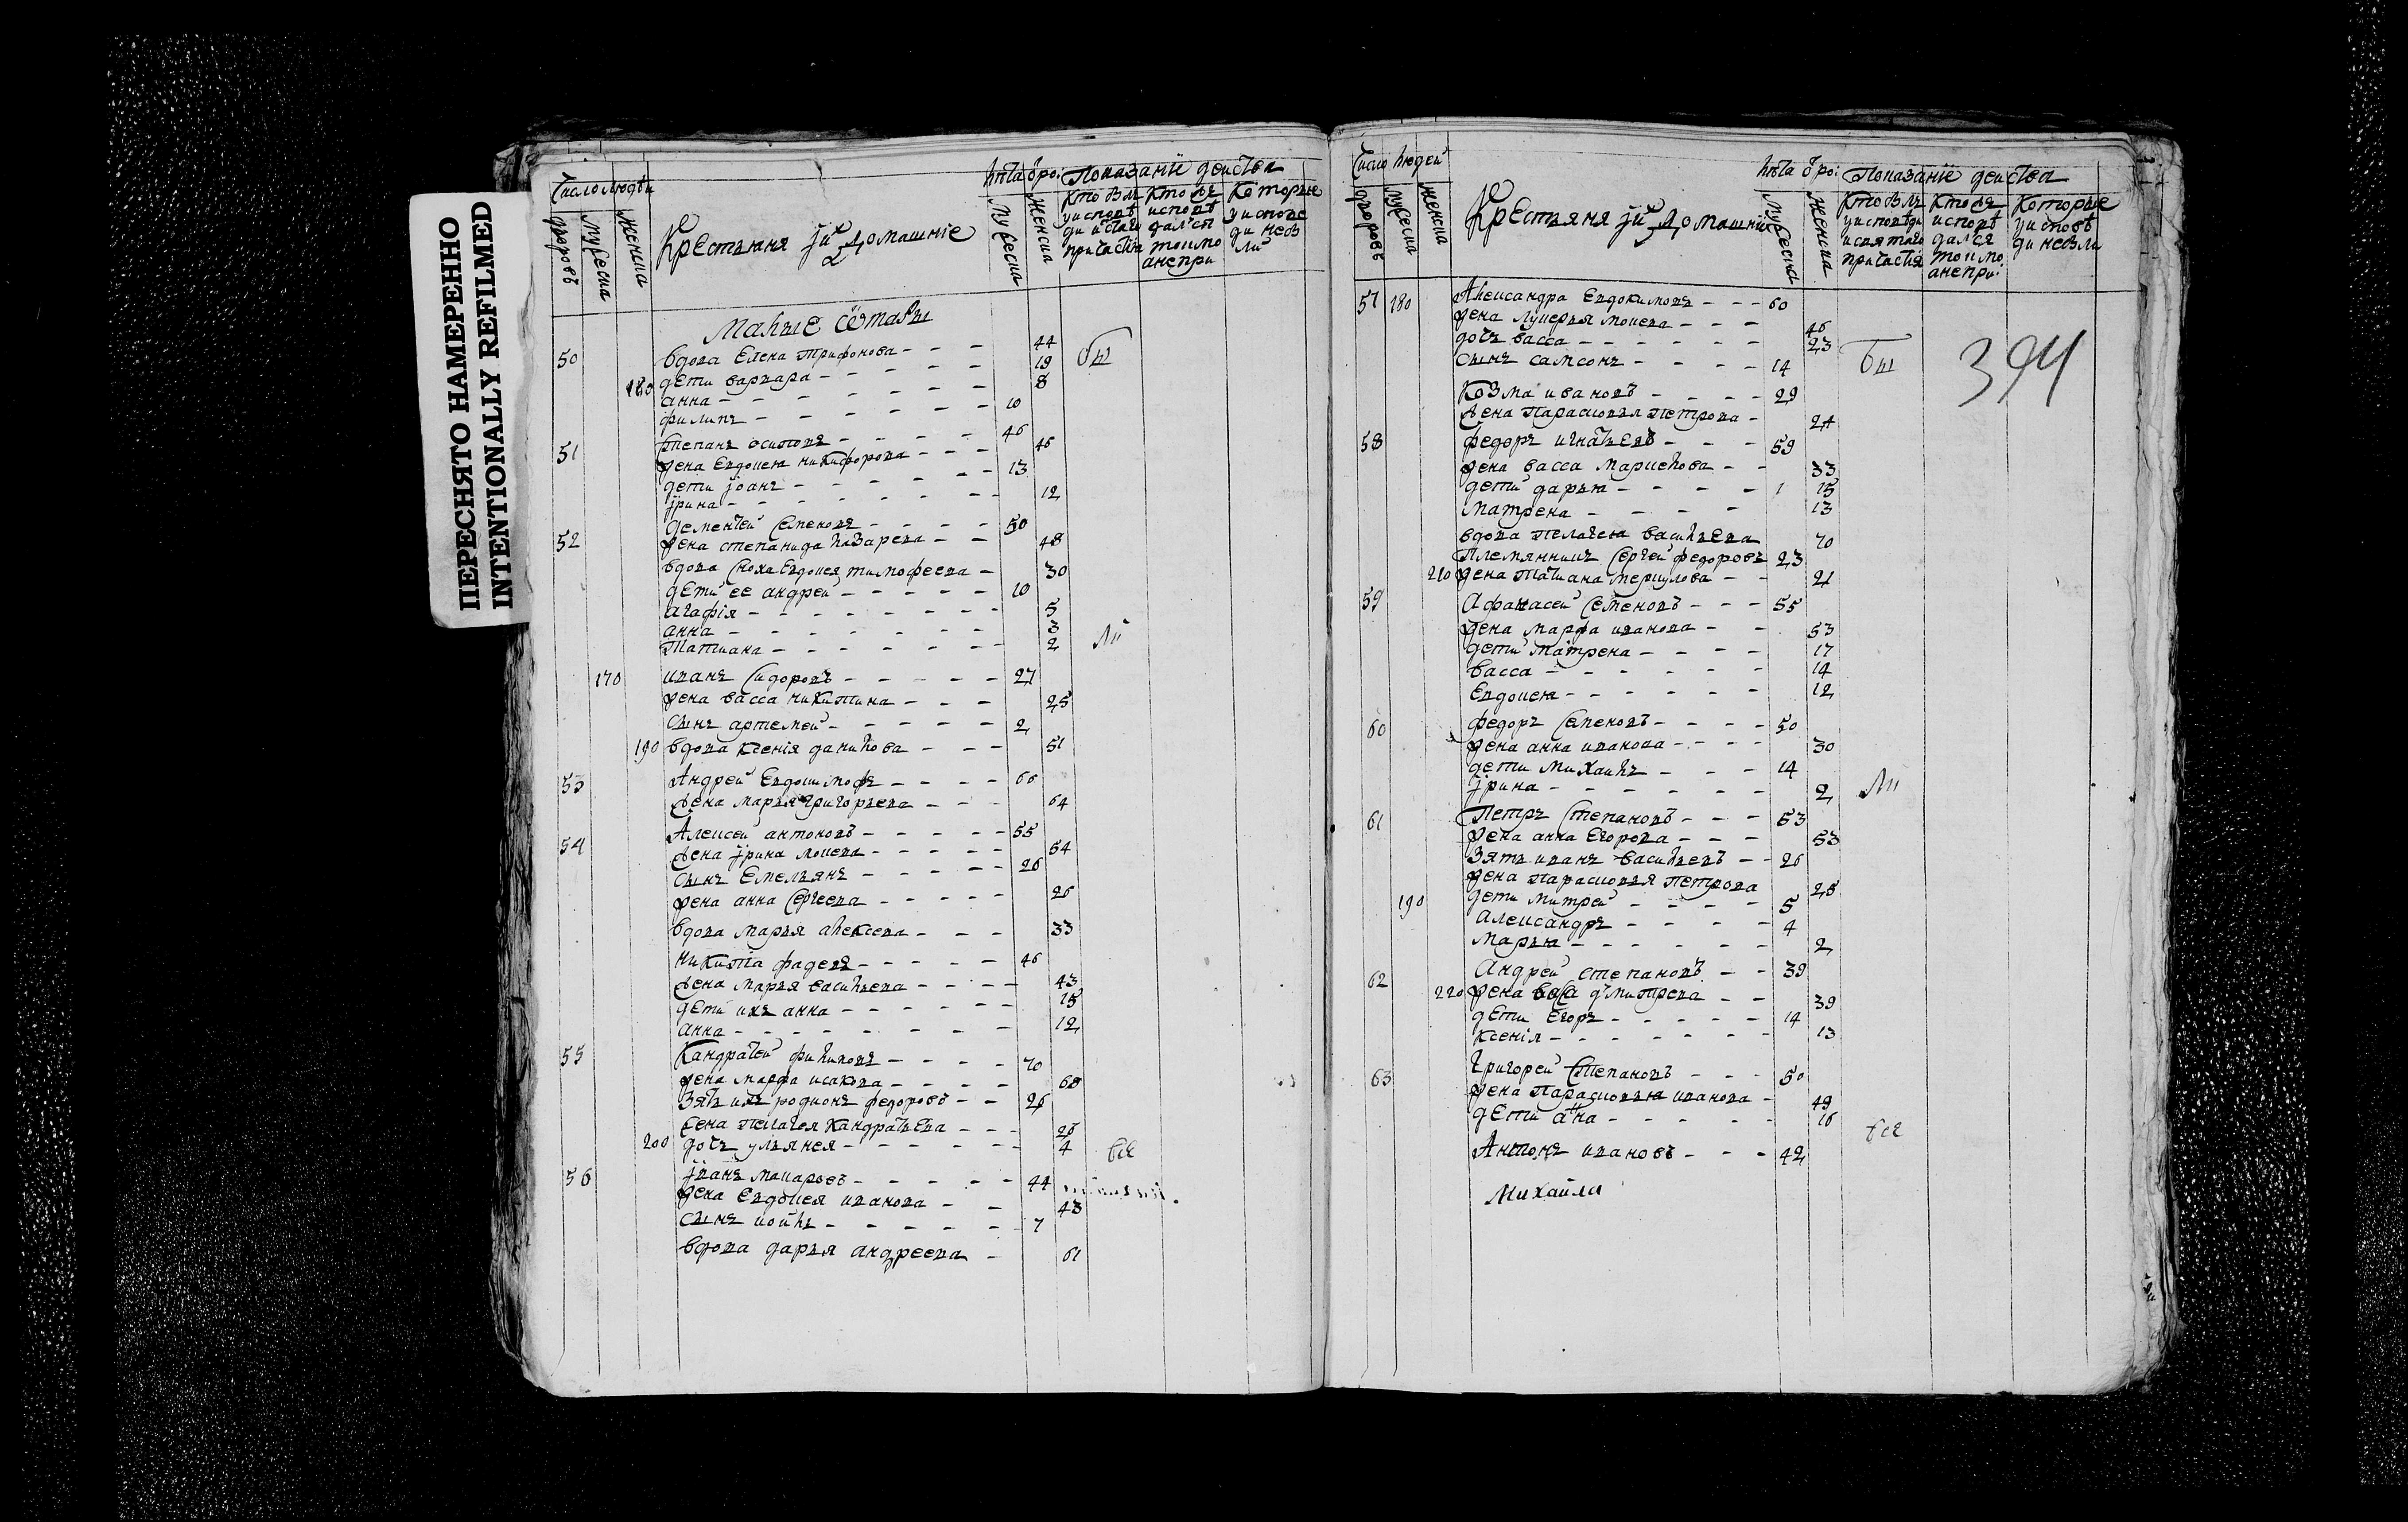 ПЕРЕСНЯТО НАМЕРЕННО
INTENTIONALLY REFILMED
Число людѣи
дворовъ
мужеска
женска
Крестьяня и их домашніе
лѣта
мужеска
женска
Показаніе деиства
Малые
50 вдова Елена трифонова - - - 44
дети варвара - - - 19
180 анна - - - 8
филипъ - - - 10
51 Степанъ осиповъ - - - 46
жена Евдокея никифорова - - - 46
дети іоанъ - - - 13
ірина - - - 12
52 дементеи Семеновъ - - - 50
жена степанида лазарева - - 48
вдова сноха Евдокея тимофеева - 30
дети ее андреи - - - 10
агафія - - - 5
анна - - - 3
Татиана - - - 2
170 иванъ Сидоровъ - - - 27
жена васса никитина - - - 25
сынъ артемеи - - - 2
190 вдова ксенія данилова - - - 51
53 Андреи Евдокимофъ - - - 66
жена марья григорьева - - - 64
54 Алексеи антоновъ - - - 55
жена ірина мокева - - - 54
сынъ Емельянъ - - - 26
жена анна Сергеева - - - 26
вдова марья алексева - - - 33
никита фадеевъ - - - 46
жена марья васильева - - - 43
дети ихъ анна - - - 15
анна - - - 12
55 Кандратеи филиповъ - - - 70
жена марфа исакова - - - 68
зять ихъ родионъ федоровъ - - 26
жена пелагея кандратьева - - - 26
200 дочь ульянея - - - 4
56 іванъ макаровъ - - - 44
жена Евдокея иванова - - 43
сынъ - - - 7
вдова дарья андреева - 61
Бы
ли
все
Число людеи
дворовъ
мужеска
женска
Крестьяня и их домашніи
лѣта
мужеска
женска
Показаніе деиства
57 180 Александра Евдокимовъ - - - 60
жена лукерья мокева - - - 46
дочь васса - - - 23
сынъ самсонъ - - - 14
козма ивановъ - - - 29
жена парасковья петрова - 24
58 федоръ игнатьевъ - - - 59
жена васса маркелова - - 33
дети дарья - - - 1 15
матрена - - - 13
вдова пелагея васильева 70
племянникъ Сергеи федоровъ 23
210 жена татиана меркулова - - 21
59 Афанасеи Семеновъ - - - 55
жена марфа иванова - - 53
дети матрена - - - 17
васса - - - 14
Евдокея - - - 12
60 федоръ Семеновъ - - - 50
жена анна иванова - - - 30
дети михаилъ - - - 14
ірина - - - 2
61 Петръ Степановъ - - - 53
жена анна Егорова - - - 53
зять иванъ васильевъ - - 26
жена парасковья петрова 25
190 дети митреи - - - 5
Александръ - - - 4
марья - - - 2
62 Андреи степановъ - - 39
220 жена васа дмитрева - - 39
дети Егоръ - - - 14
ксенія - - - 13
63 Григореи Степановъ - - - 50
жена парасковья иванова - 49
дети ана - - - 16
Антонъ ивановъ - - - 42
Михаила
Бы
ли
все
394